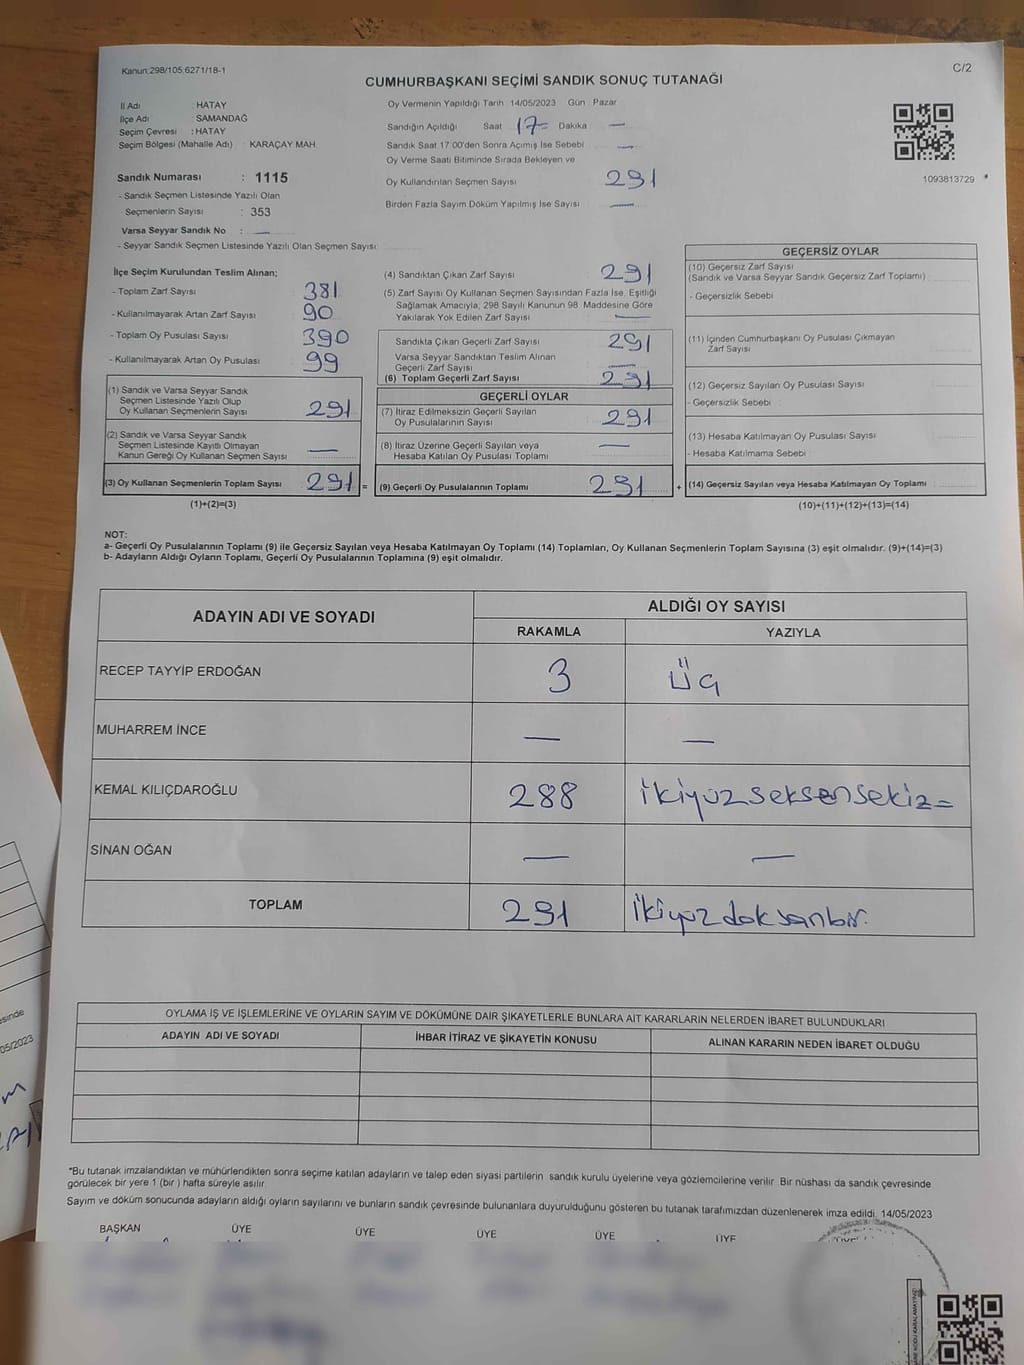 Kanun:298/105;6271/18-1
C/2
CUMHURBAŞKANI SEÇİMİ SANDIK SONUÇ TUTANAĞI
İl Adı : HATAY
İlçe Adı : SAMANDAĞ
Seçim Çevresi : HATAY
Seçim Bölgesi (Mahalle Adı) : KARAÇAY MAH.
Oy Vermenin Yapıldığı Tarih : 14/05/2023 Gün : Pazar
Sandığın Açıldığı Saat 17= Dakika —
Sandık Saat 17:00'den Sonra Açımış İse Sebebi —
Oy Verme Saati Bitiminde Sırada Bekleyen ve
Oy Kullandırılan Seçmen Sayısı 291
Birden Fazla Sayım Döküm Yapılmış İse Sayısı —
1093813729
Sandık Numarası : 1115
- Sandık Seçmen Listesinde Yazılı Olan
Seçmenlerin Sayısı : 353
Varsa Seyyar Sandık No : —
- Seyyar Sandık Seçmen Listesinde Yazılı Olan Seçmen Sayısı:
İlçe Seçim Kurulundan Teslim Alınan;
- Toplam Zarf Sayısı 381
- Kullanılmayarak Artan Zarf Sayısı : 90
- Toplam Oy Pusulası Sayısı : 390
- Kullanılmayarak Artan Oy Pusulası 99
(1) Sandık ve Varsa Seyyar Sandık
Seçmen Listesinde Yazılı Olup
Oy Kullanan Seçmenlerin Sayısı 291
(2) Sandık ve Varsa Seyyar Sandık
Seçmen Listesinde Kayıtlı Olmayan
Kanun Gereği Oy Kullanan Seçmen Sayısı —
(3) Oy Kullanan Seçmenlerin Toplam Sayısı 291 =
(1)+(2)=(3)
(4) Sandıktan Çıkan Zarf Sayısı 291
(5) Zarf Sayısı Oy Kullanan Seçmen Sayısından Fazla İse, Eşitliği
Sağlamak Amacıyla, 298 Sayılı Kanunun 98. Maddesine Göre
Yakılarak Yok Edilen Zarf Sayısı —
Sandıkta Çıkan Geçerli Zarf Sayısı 291
Varsa Seyyar Sandıktan Teslim Alınan
Geçerli Zarf Sayısı —
(6) Toplam Geçerli Zarf Sayısı 291
GEÇERLİ OYLAR
(7) İtiraz Edilmeksizin Geçerli Sayılan
Oy Pusulalarının Sayısı 291
(8) İtiraz Üzerine Geçerli Sayılan veya
Hesaba Katılan Oy Pusulası Toplamı —
(9) Geçerli Oy Pusulalarının Toplamı 291 +
GEÇERSİZ OYLAR
(10) Geçersiz Zarf Sayısı
(Sandık ve Varsa Seyyar Sandık Geçersiz Zarf Toplamı)
- Geçersizlik Sebebi
(11) İçinden Cumhurbaşkanı Oy Pusulası Çıkmayan
Zarf Sayısı
(12) Geçersiz Sayılan Oy Pusulası Sayısı
- Geçersizlik Sebebi
(13) Hesaba Katılmayan Oy Pusulası Sayısı
- Hesaba Katılmama Sebebi
(14) Geçersiz Sayılan veya Hesaba Katılmayan Oy Toplamı
(10)+(11)+(12)+(13)=(14)
NOT:
a- Geçerli Oy Pusulalarının Toplamı (9) ile Geçersiz Sayılan veya Hesaba Katılmayan Oy Toplamı (14) Toplamları, Oy Kullanan Seçmenlerin Toplam Sayısına (3) eşit olmalıdır. (9)+(14)=(3)
b- Adayların Aldığı Oyların Toplamı, Geçerli Oy Pusulalarının Toplamına (9) eşit olmalıdır.
ADAYIN ADI VE SOYADI ALDIĞI OY SAYISI
RAKAMLA YAZIYLA
RECEP TAYYİP ERDOĞAN 3 üç
MUHARREM İNCE — —
KEMAL KILIÇDAROĞLU 288 ikiyüzseksensekiz=
SİNAN OĞAN — —
TOPLAM 291 ikiyüzdoksanbir.
OYLAMA İŞ VE İŞLEMLERİNE VE OYLARIN SAYIM VE DÖKÜMÜNE DAİR ŞİKAYETLERLE BUNLARA AİT KARARLARIN NELERDEN İBARET BULUNDUKLARI
ADAYIN ADI VE SOYADI İHBAR İTİRAZ VE ŞİKAYETİN KONUSU ALINAN KARARIN NEDEN İBARET OLDUĞU
*Bu tutanak imzalandıktan ve mühürlendikten sonra seçime katılan adayların ve talep eden siyasi partilerin sandık kurulu üyelerine veya gözlemcilerine verilir. Bir nüshası da sandık çevresinde
görülecek bir yere 1 (bir ) hafta süreyle asılır.
Sayım ve döküm sonucunda adayların aldığı oyların sayılarını ve bunların sandık çevresinde bulunanlara duyurulduğunu gösteren bu tutanak tarafımızdan düzenlenerek imza edildi. 14/05/2023
BAŞKAN ÜYE ÜYE ÜYE ÜYE ÜYE ÜYE